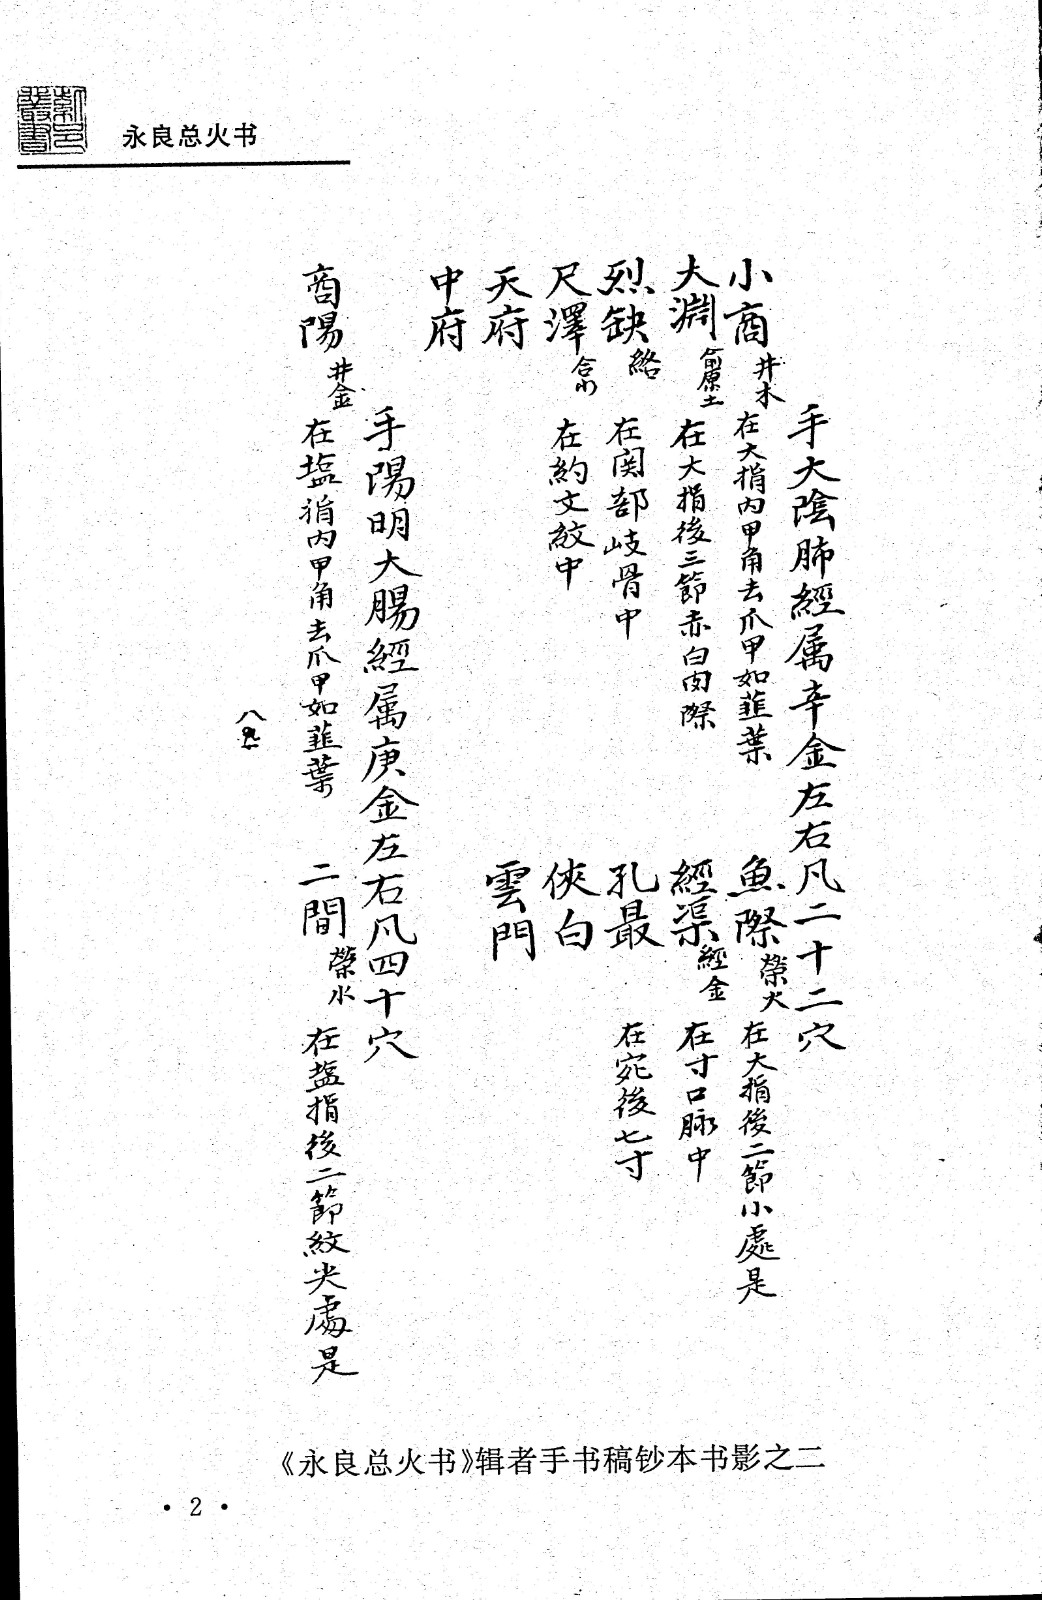 永良总火书
手大陰肺經属辛金左右凡二十二穴
小商 井木 在大指内甲角去爪甲如韮葉 魚際 榮火 在大指後二節小處是
大淵 俞原土 在大指後三節赤白肉際 經渠 經金 在寸口脉中
烈缺 絡 在関部岐骨中 孔最 在宛後七寸
尺澤 合水 在約文紋中 俠白
天府 雲門
中府
手陽明大腸經属庚金左右凡四十穴
商陽 井金 在塩指内甲角去爪甲如韮葉 二間 榮水 在塩指後二節紋尖處是
《永良总火书》辑者手书稿钞本书影之二
·2·